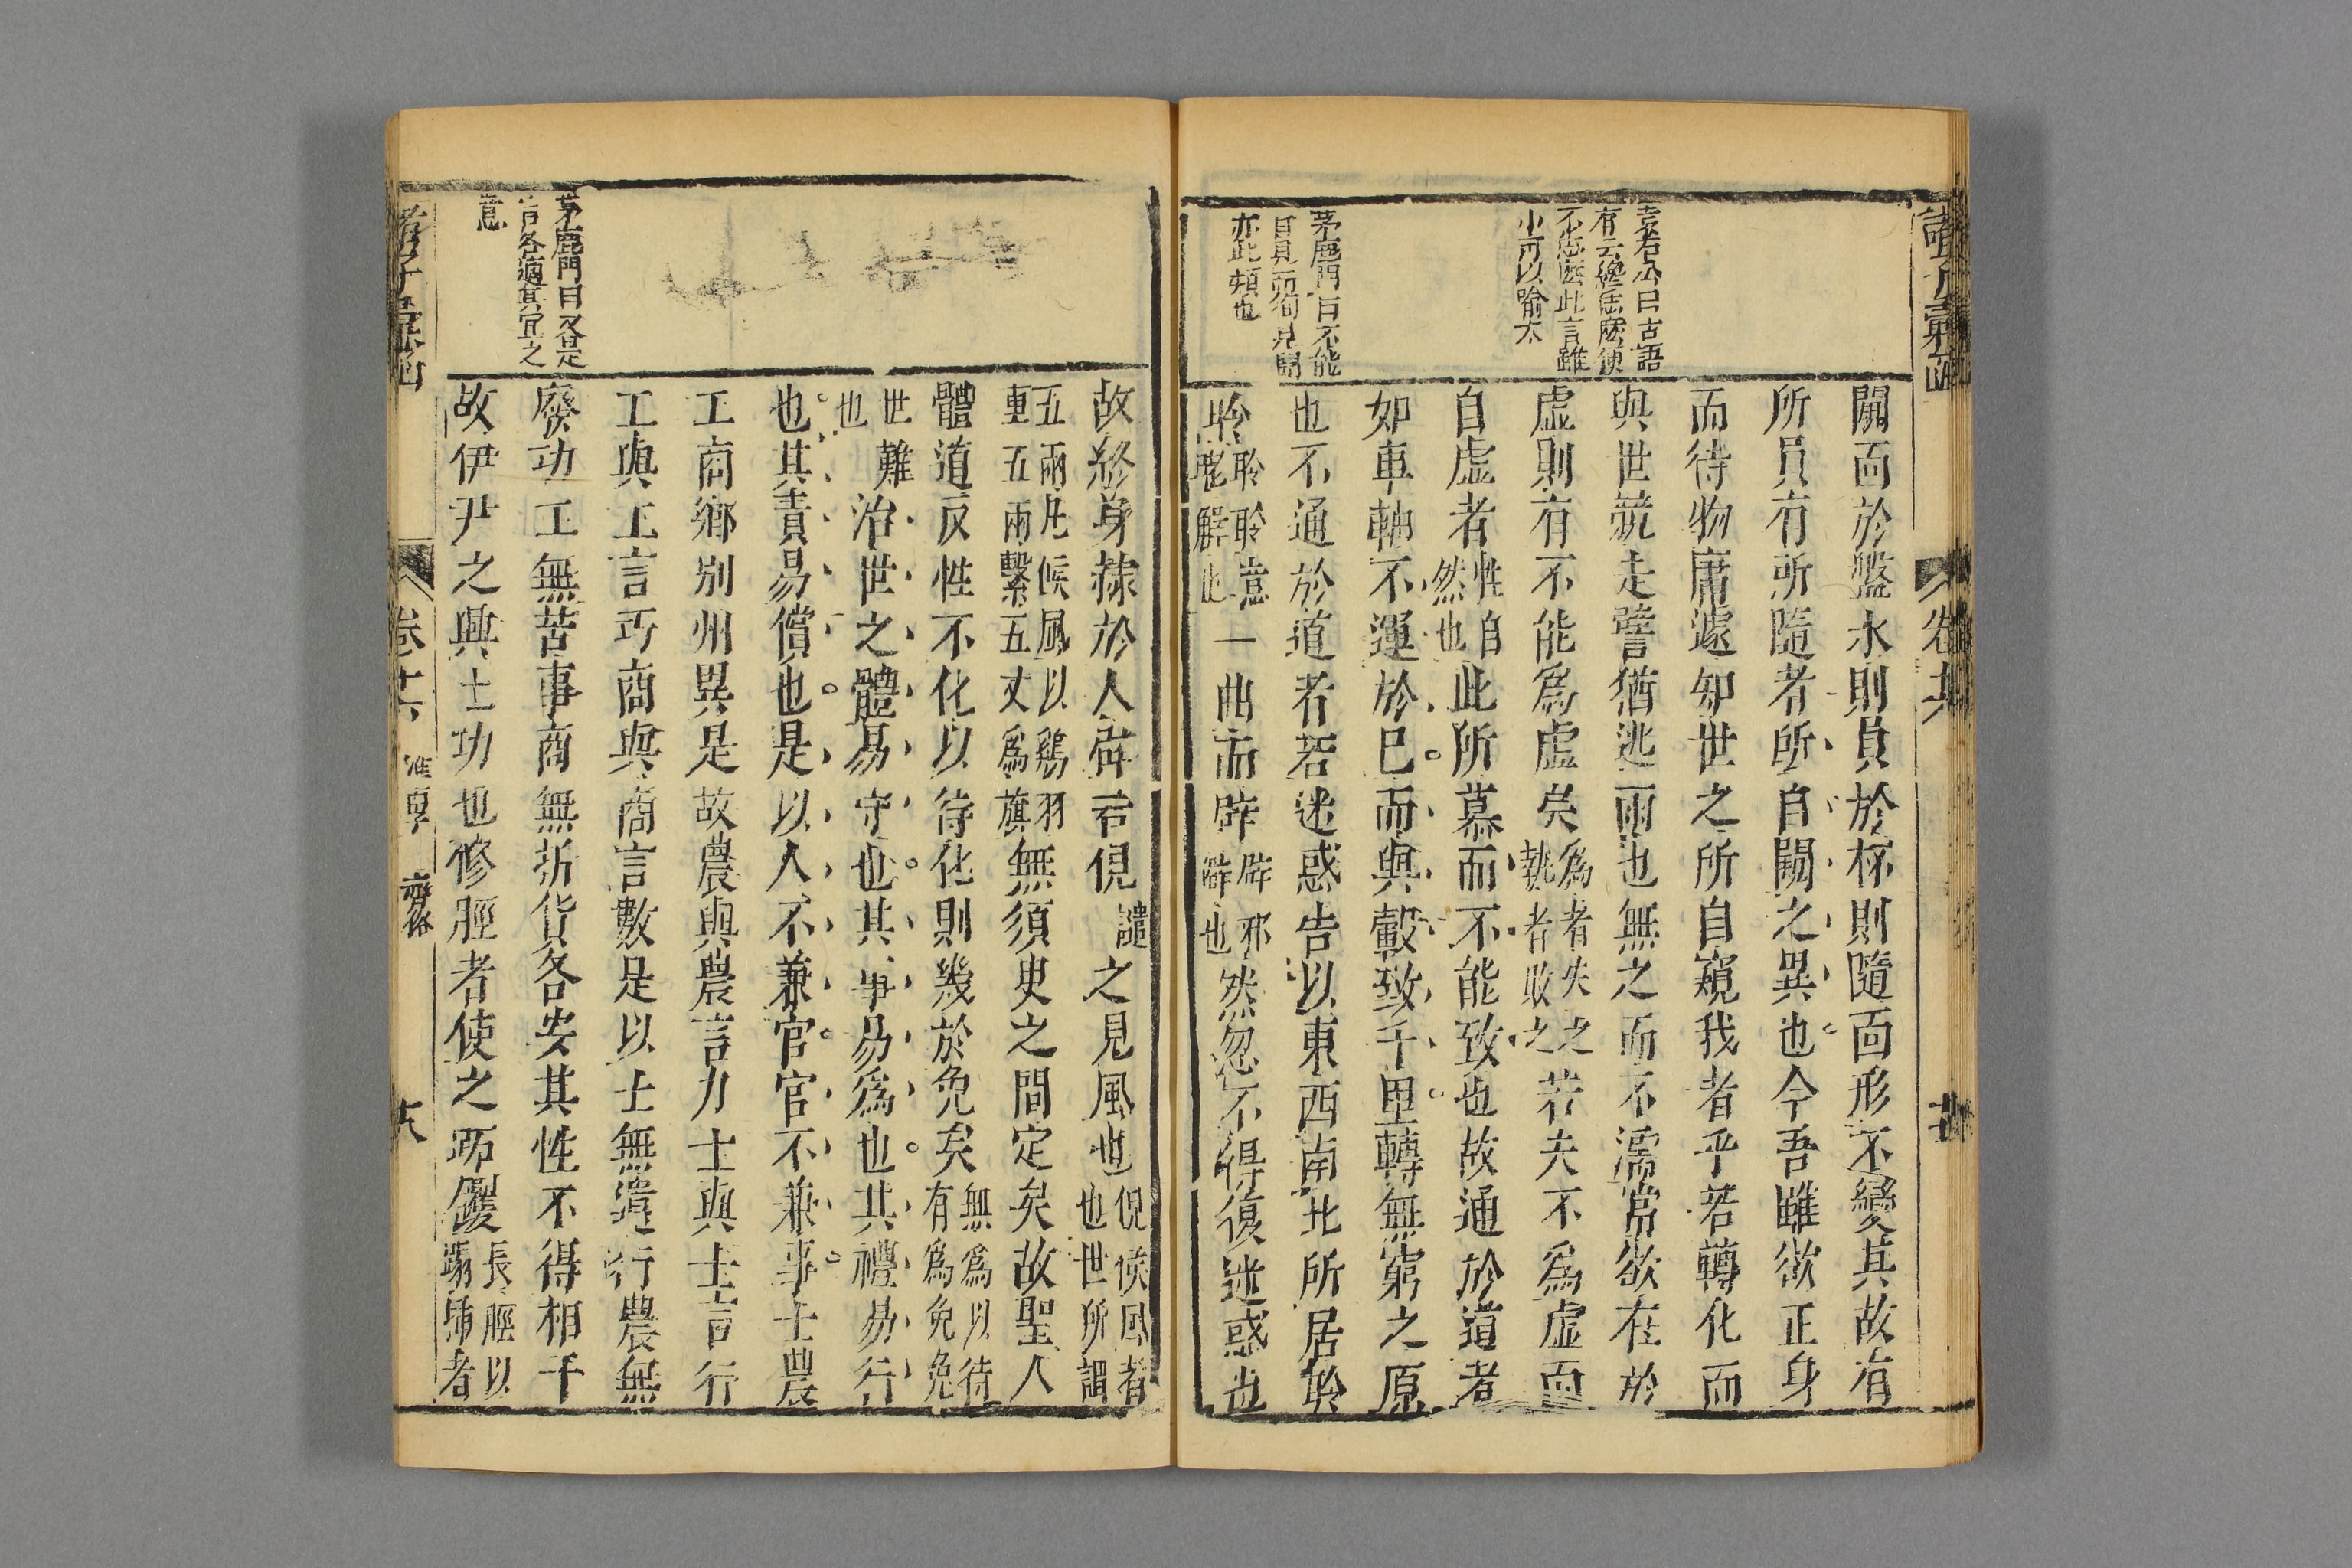 諸子彙函
卷十六
袁石公曰古語
有云纔恁麽便
不恁麽此言雖
小可以喻大
茅鹿門曰不能
自見而徇見聞
亦此類也
闚面於盤水則員於杯則隨面形不變其故有
所員有所隨者所自闚之異也今吾雖欲正身
而待物庸遽知世之所自窺我者乎若轉化而
與世競走譬猶逃雨也無之而不濡常欲在於
虛則有不能爲虛矣爲者失之執者敗之若夫不爲虛而
自虛者性自然也此所慕而不能致也故通於道者
如車軸不運於巳而與轂致千里轉無窮之原
也不通於道者若迷惑告以東西南北所居聆
聆聆聆意曉解也一曲而辟辟邪僻也然忽不得復迷惑也
茅鹿門曰又各是
言各適其宜之
意
故終身隸於人辟若俔譴之見風也俔候風者也世所謂
五兩凡候風以鷄羽重五兩繫五丈爲旗無須臾之間定矣故聖人
體道反性不化以待化則幾於免矣無爲以待有爲免免
世難也治世之體易守也其事易爲也其禮易行
也其責易償也是以人不兼官官不兼事士農
工商鄉別州異是故農與農言力士與士言行
工與工言巧商與商言數是以士無遺行農無
廢功工無苦事商無折貨各安其性不得相干
故伊尹之興土功也修脛者使之跖钁長脛以蹋插者
諸子彙函
卷十六
淮南
齊俗
十八